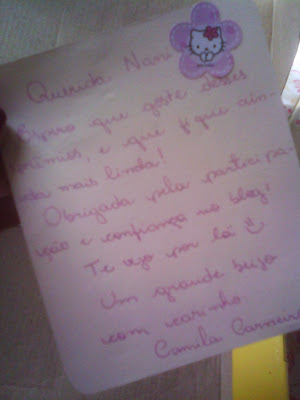 Querida Nani
Espero que goste desses
prêmios, e que fique ain-
da mais linda!
Obrigada pela participa-
ção e confiança no blog!
Te vejo por lá
Um grande beijo
com carinho
Camila Carneiro